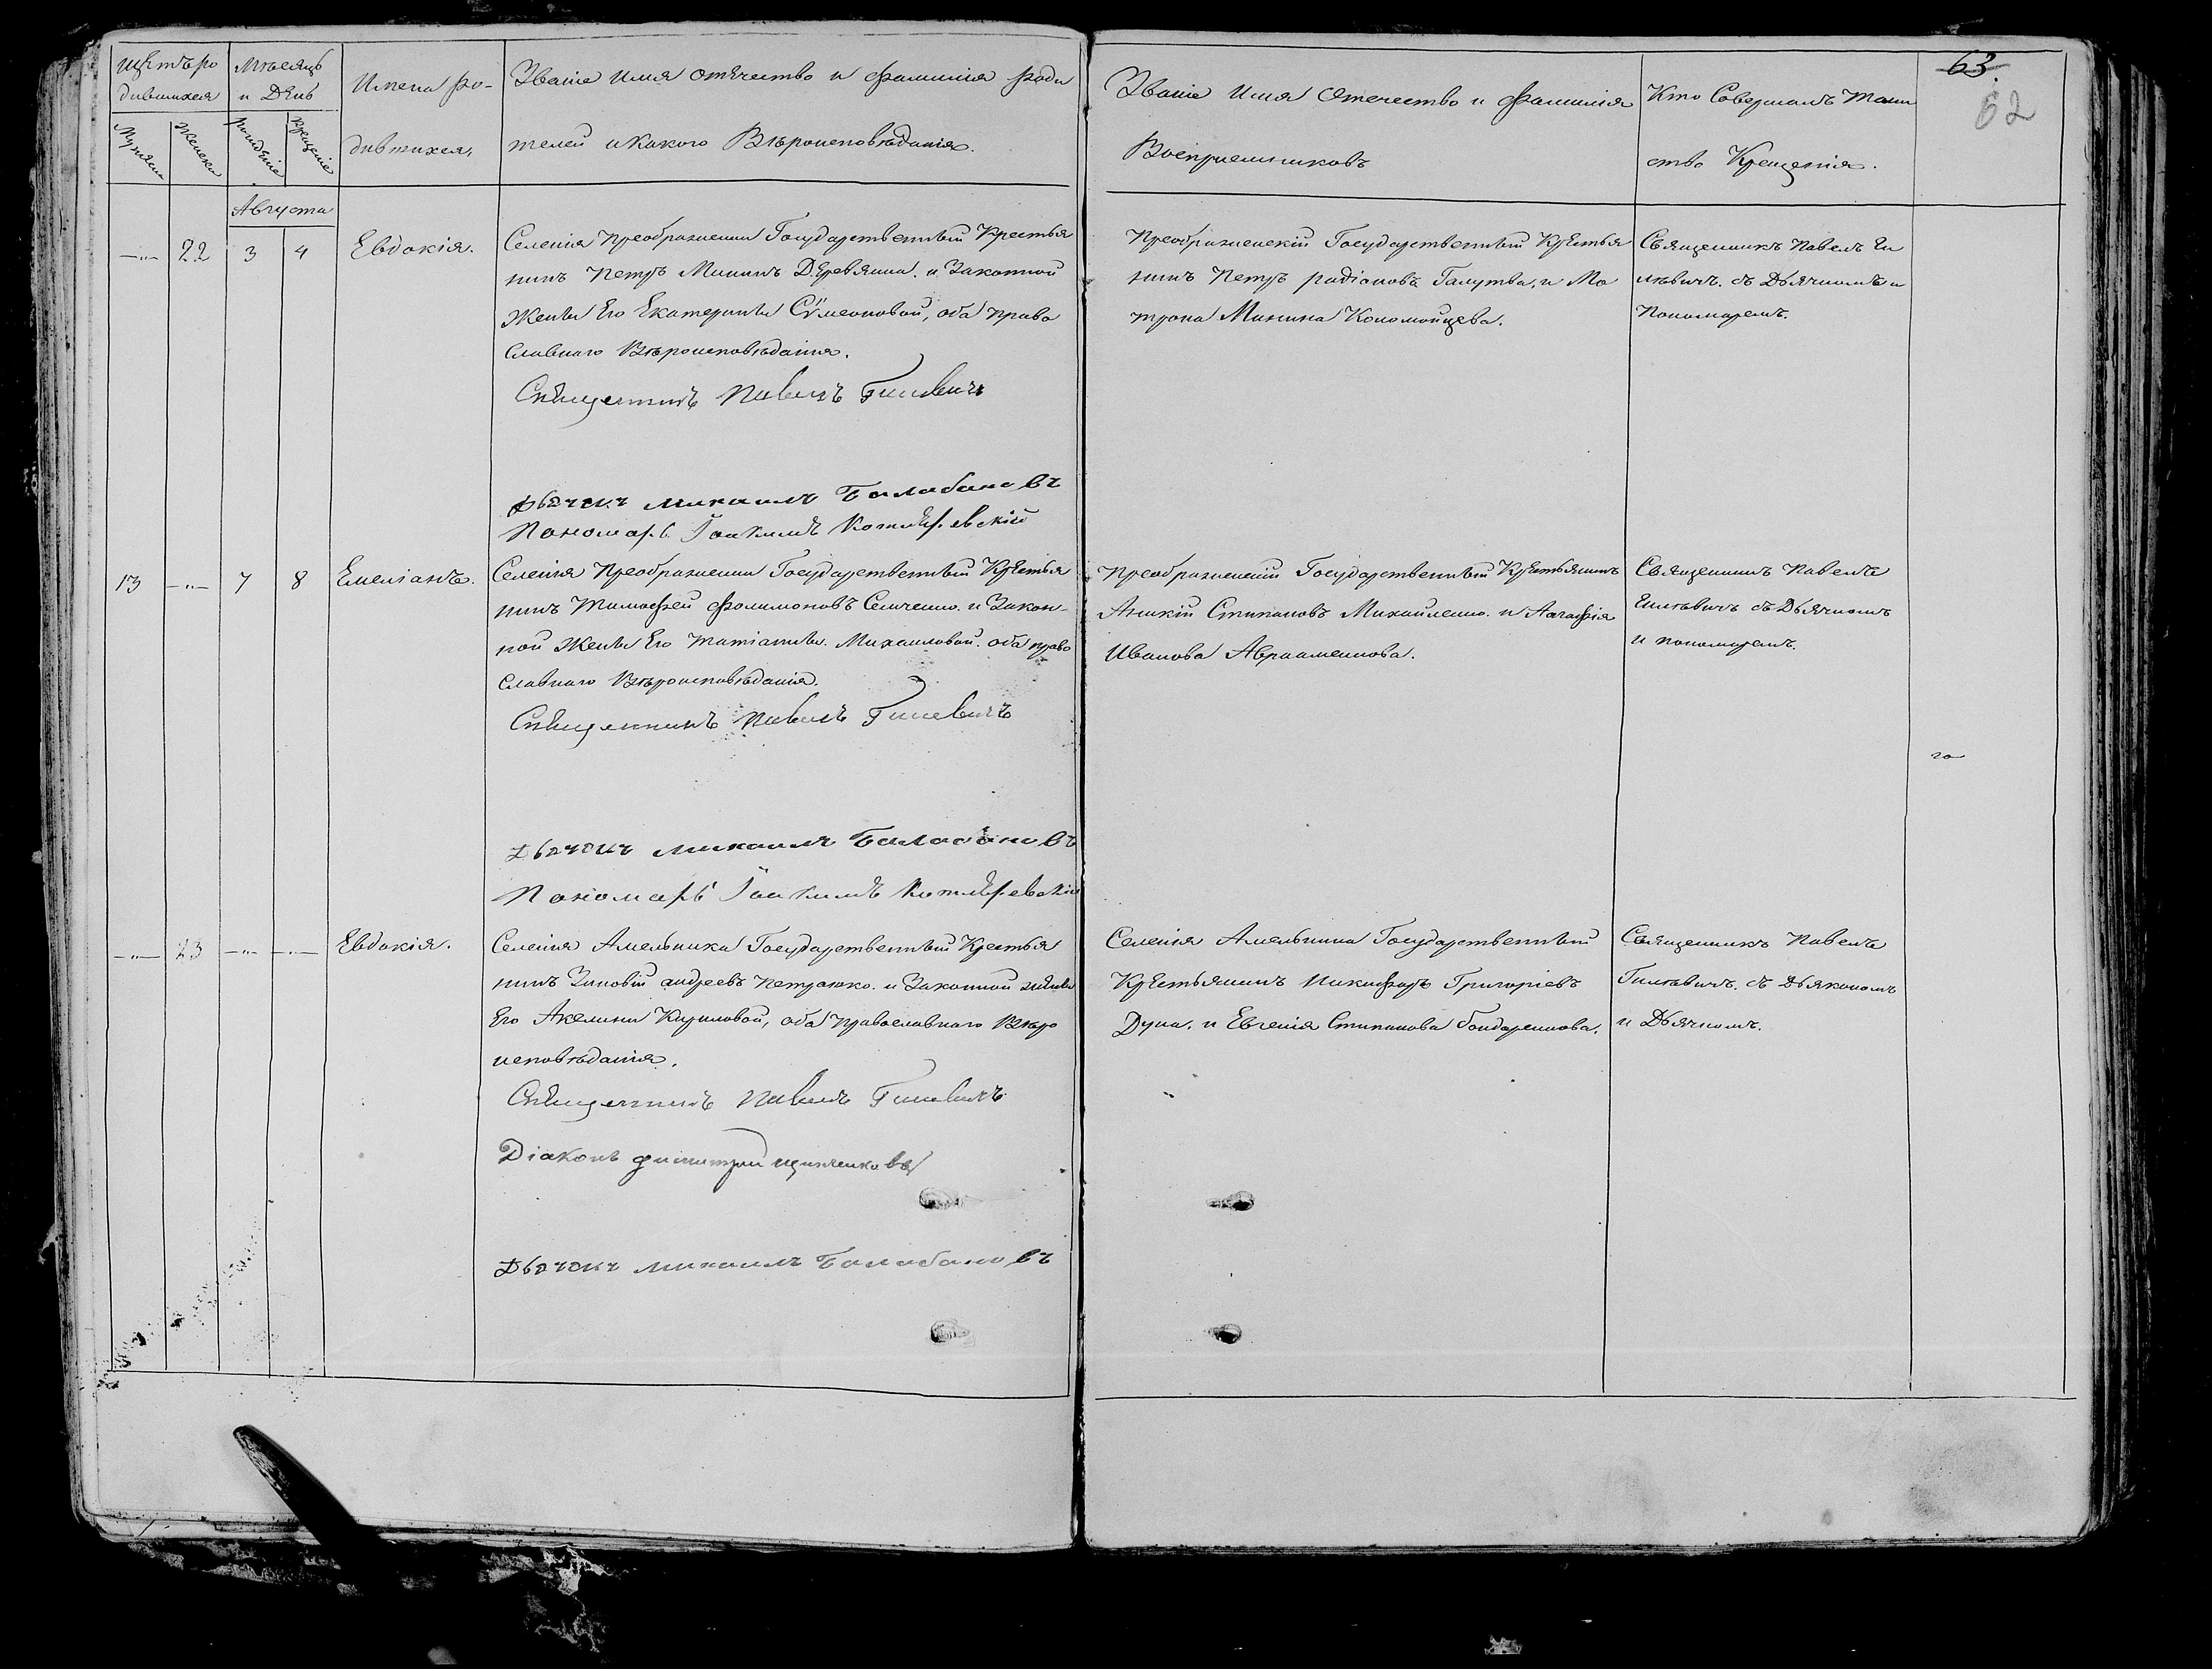 63.
62
Щетъ ро
дившихся
Мѣсяцъ
и День
Имена ро-
дившихся,
Званіе Имя отечество и фамилія роди
телей и какого Вѣроисповѣданія.
Званіе Имя Отечество и Фамилія
Воспріемниковъ
Кто Совершалъ Таин
ство Крещенія.
Мужеск
Женски
рожденіе
крещеніе
Августа
—"— 22 3 4 Евдокія.
Селенія Преображенки Государственный Крестья
нинъ Петръ Мининъ Деревянка. и Законной
Жены Его Екатерины Сѵмеоновой, оба Право
Славнаго Вѣроисповѣданія.
Священникъ Павелъ Гилевичъ
Дьячокъ Михаилъ Балабановъ
Пономарь Іоакимъ Котляревскій
Преображенскій Государственный Крестья
нинъ Петръ радіоновъ Галутва, и Ма
трона Минина Коломойцева.
Священникъ Павелъ Ги
лѣвичъ. съ Дьячкомъ и
Пономаремъ.
13 —"— 7 8 Емеліанъ.
Селенія Преображенки Государственный Крестья
нинъ Тимофей Филимоновъ Семченко. и Закон-
ной Жены Его Татіаны Михаиловой. оба право
славнаго Вѣроисповѣданія.
Священникъ Павелъ Гилевичъ
Дьячокъ Михаилъ Балабановъ
Пономарь Іоакимъ Котляревскій
Преображенскій Государственный Крестьянинъ
Аникій Стипановъ Михайленко. и Агафія
Иванова Авраменкова.
Священникъ Павелъ
Гилѣвичъ съ Дьячкомъ
и пономаремъ.
—"— 23 —"— —"— Евдокія.
Селенія Амельника Государственный Крестья
нинъ Зиновій андреевъ Петренко. и Законной жены
Его Акелины Кириловой, оба Православнаго Вѣро
исповѣданія.
Священникъ Павелъ Гилевичъ
Діаконъ Димитрій
Дьячокъ Михаилъ Балабановъ
Селенія Амельника Государственный
Крестьянинъ Никифоръ Григоріевъ
Дупа, и Евгенія Стипанова бондаренкова.
Священникъ Павелъ
Гилѣвичъ. съ Дьякономъ
и Дьячкомъ.